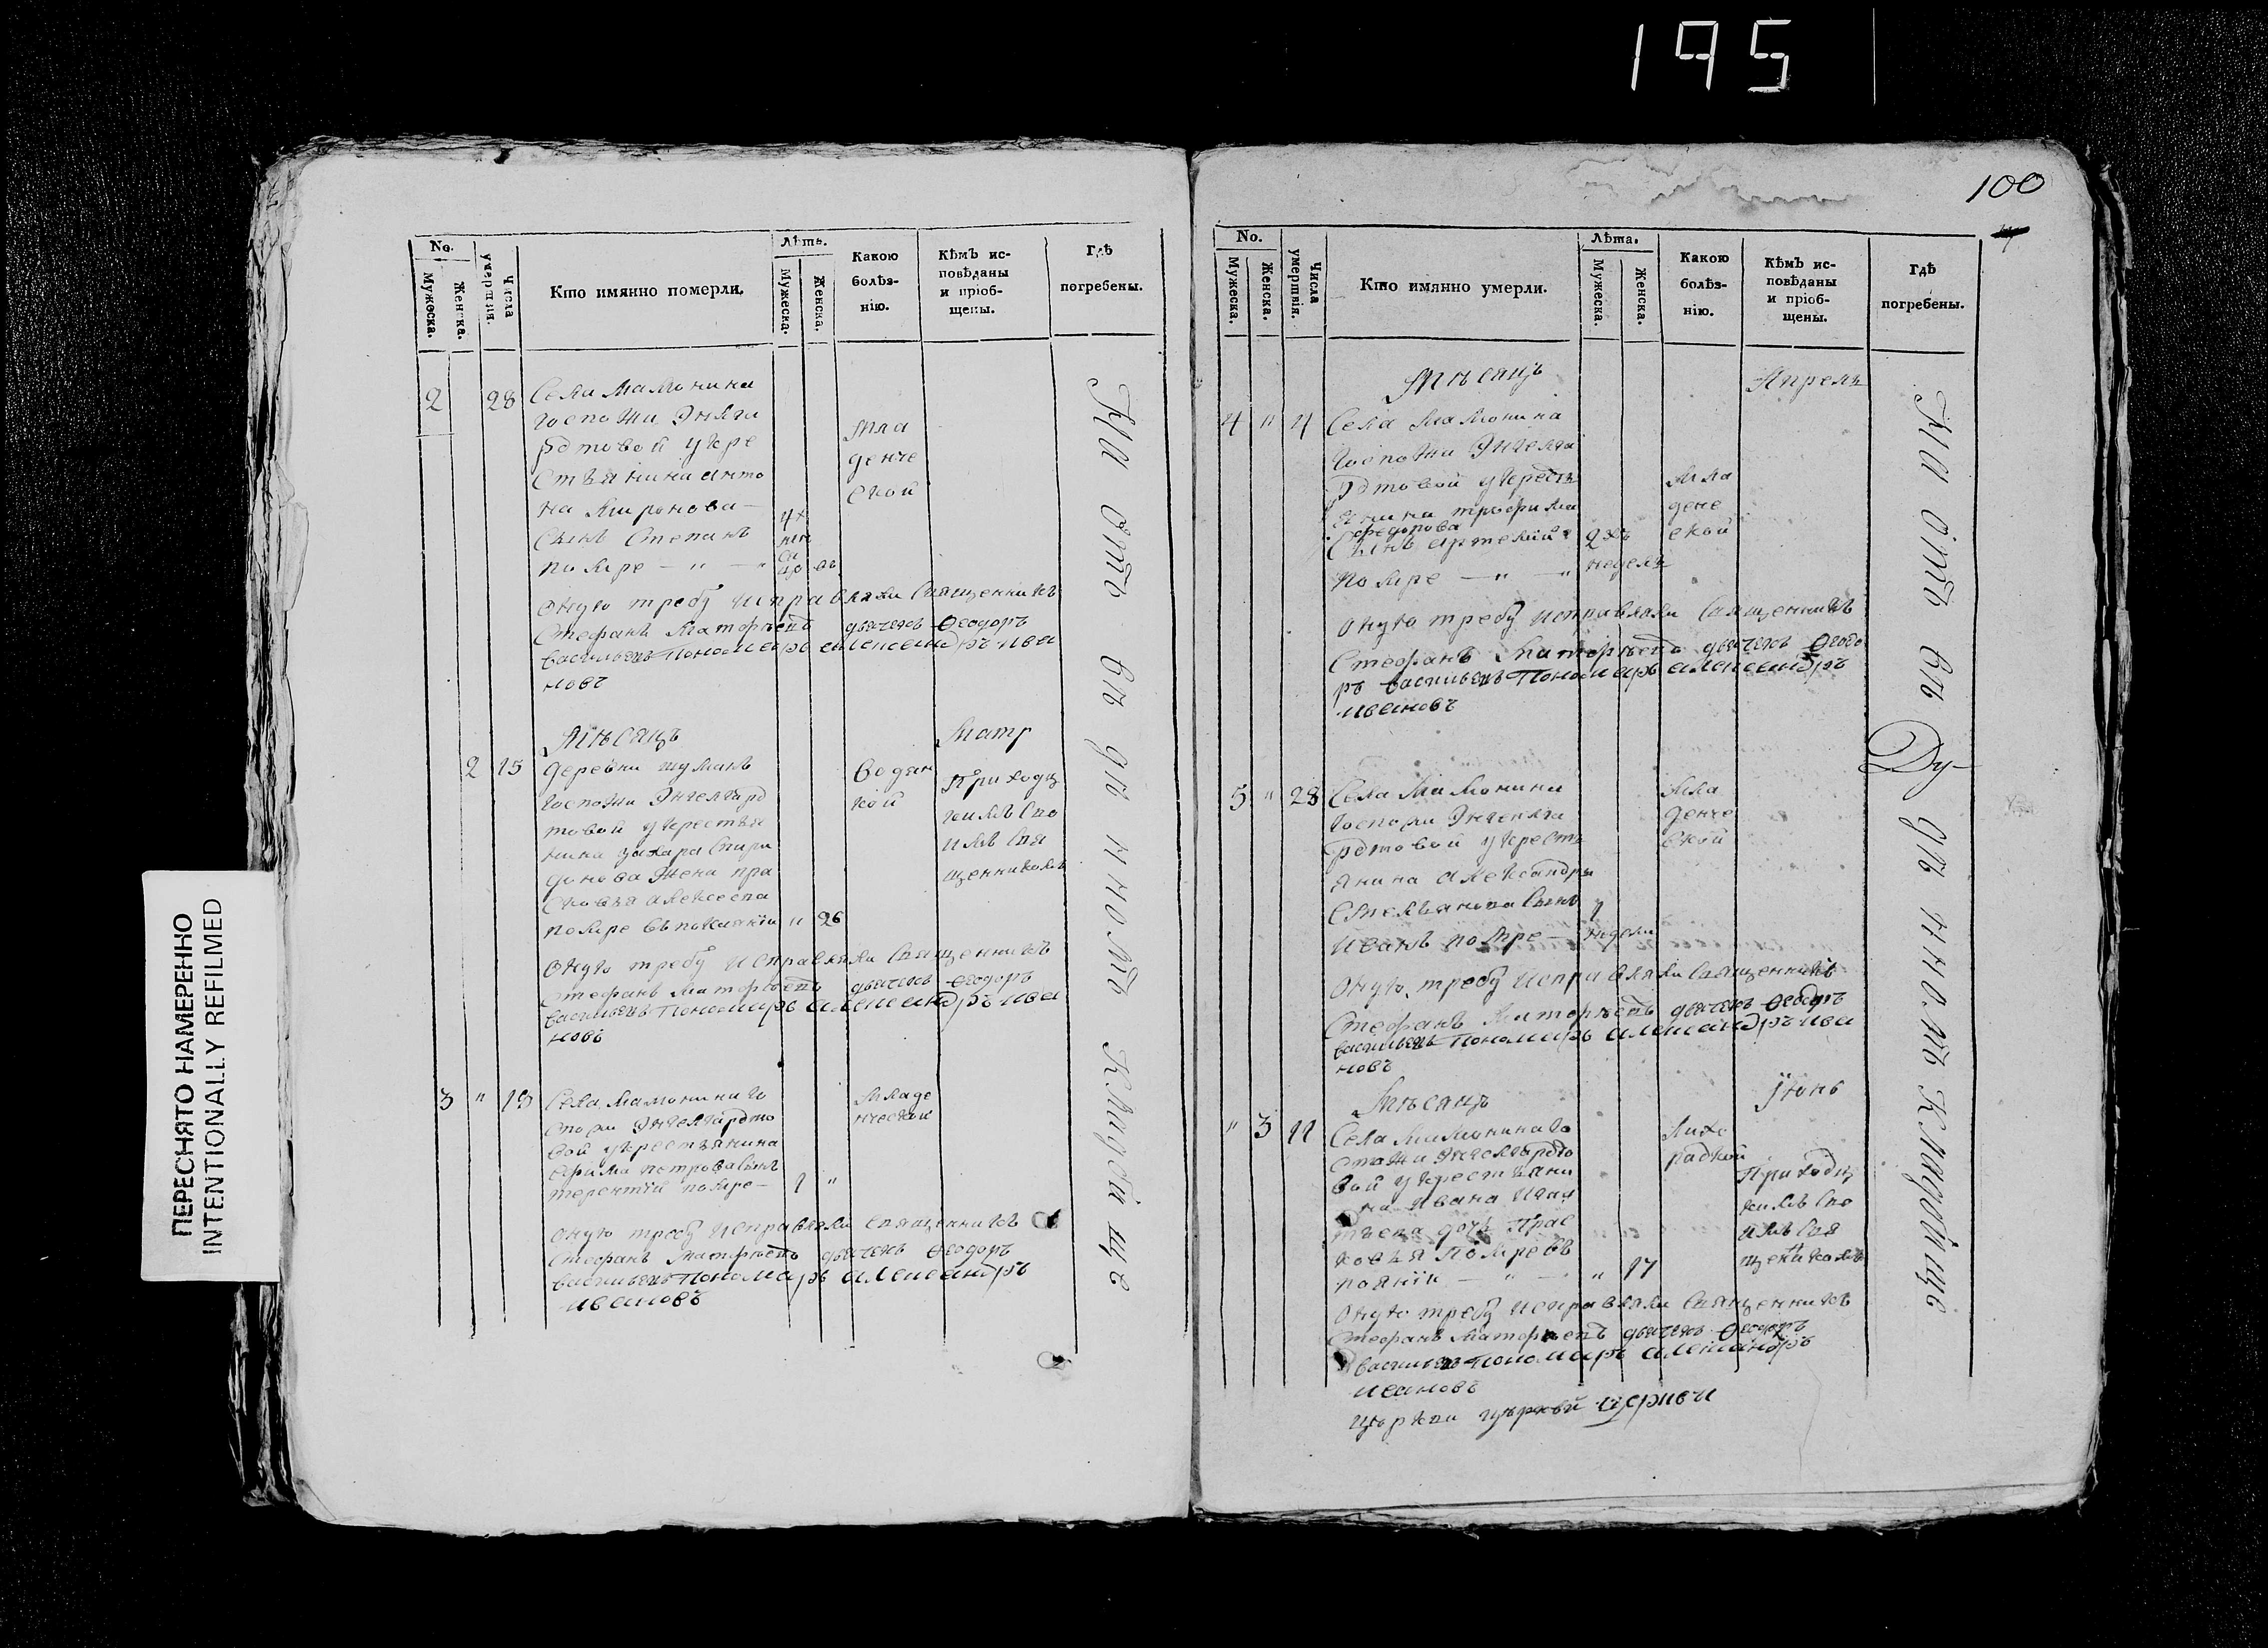 195
100
ПЕРЕСНЯТО НАМЕРЕННО
INTENTIONALLY REFILMED
No.
Мужеска.
Женска.
Числа умертвія.
Кто имянно померли.
Лѣтъ.
Мужеска.
Женска.
Какою болѣз-
нію.
Кѣмъ ис-
повѣданы
и пріоб-
щены.
Гдѣ
погребены.
2 28 Села Мамонина
госпожи Энгелга
рдтовой у кре
стьянина анто
на Миронова
Сынъ Степанъ
помре
Мла
денче
ской
оную требу исправляли Священникъ
Стефанъ Матфѣевъ дьячекъ Ѳеодоръ
васильевъ пономарь александръ ива
новъ
Мѣсяцъ Мартъ
2 15 деревни
госпожи Энгелгард
товой у крестья
нина захара Спири
донова жена пра
сковья алексеева
помре въ покаянїи " 26
Водян
кой
Приходц
кимъ Сво
имъ Свя
щенникомъ
оную требу исправляли Священникъ
Стефанъ Матфѣевъ дьячекъ Ѳеодоръ
васильевъ пономарь александръ ива
новъ
3 " 19 Села Мамонина го
спожи Энгелгардто
вой у крестьянина
ефима петрова сынъ
терентїй помре 1 "
Младе
нческой
оную требу исправляли Священникъ
Стефанъ Матфѣевъ дьячекъ Ѳеодоръ
васильевъ пономарь александръ
ивановъ
На отъ въ де нномъ Кладби ще
No.
Мужеска.
Женска.
Числа умертвія.
Кто имянно умерли.
Лѣта.
Мужеска.
Женска.
Какою
болѣз-
нію.
Кѣмъ ис-
повѣданы
и пріоб-
щены.
Гдѣ
погребены.
Мѣсяцъ Апрель
4 " 4 Села Мамонина
госпожи Энгелга
рдтовой у кресть
янина трофима
федорова
Сынъ артемїй 2хъ
помре недель
Мла
денче
ской
оную требу исправляли Священникъ
Стефанъ Матфѣевъ дьячекъ Ѳеодо
ръ васильевъ пономарь александръ
ивановъ
5 " 28 Села Мамонина
госпожи Энгелга
рдтовой у кресть
янина александры
Емельянова Сынъ
Иванъ помре недели
Мла
денче
ской
оную требу исправляли Священникъ
Стефанъ Матфѣевъ дьячекъ Ѳеодоръ
васильевъ пономарь александръ ива
новъ
Мѣсяцъ Їюнь
" 3 11 Села Мамонина го
спожи Энгелгардто
вой у крестьяни
на Ивана Игна
тьева дочь Прас
ковья помре въ
" 17
Лихо
радкой
Приходц
кимъ Сво
имъ Свя
щенникомъ
оную требу исправляли Священникъ
Стефанъ Матфѣевъ дьячекъ Ѳеодоръ
васильевъ пономарь александръ
ивановъ
На отъ въ Ду де нномъ Кладбище